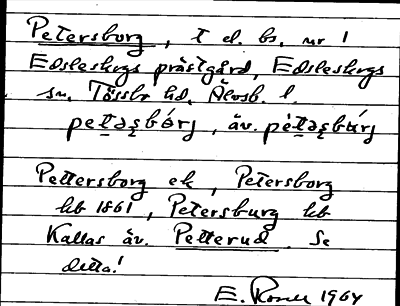 Petersborg, t el. bs. nr 1
Edsleskogs prästgård, Edsleskogs
sn, Tössbo hd, Älvsb. l.
petəʂbórj, äv. pètəʂbúrj
Pettersborg ek, Petersborg
hb 1861, Petersburg hb
Kallas äv. Petterud. Se
detta!
E. 1964